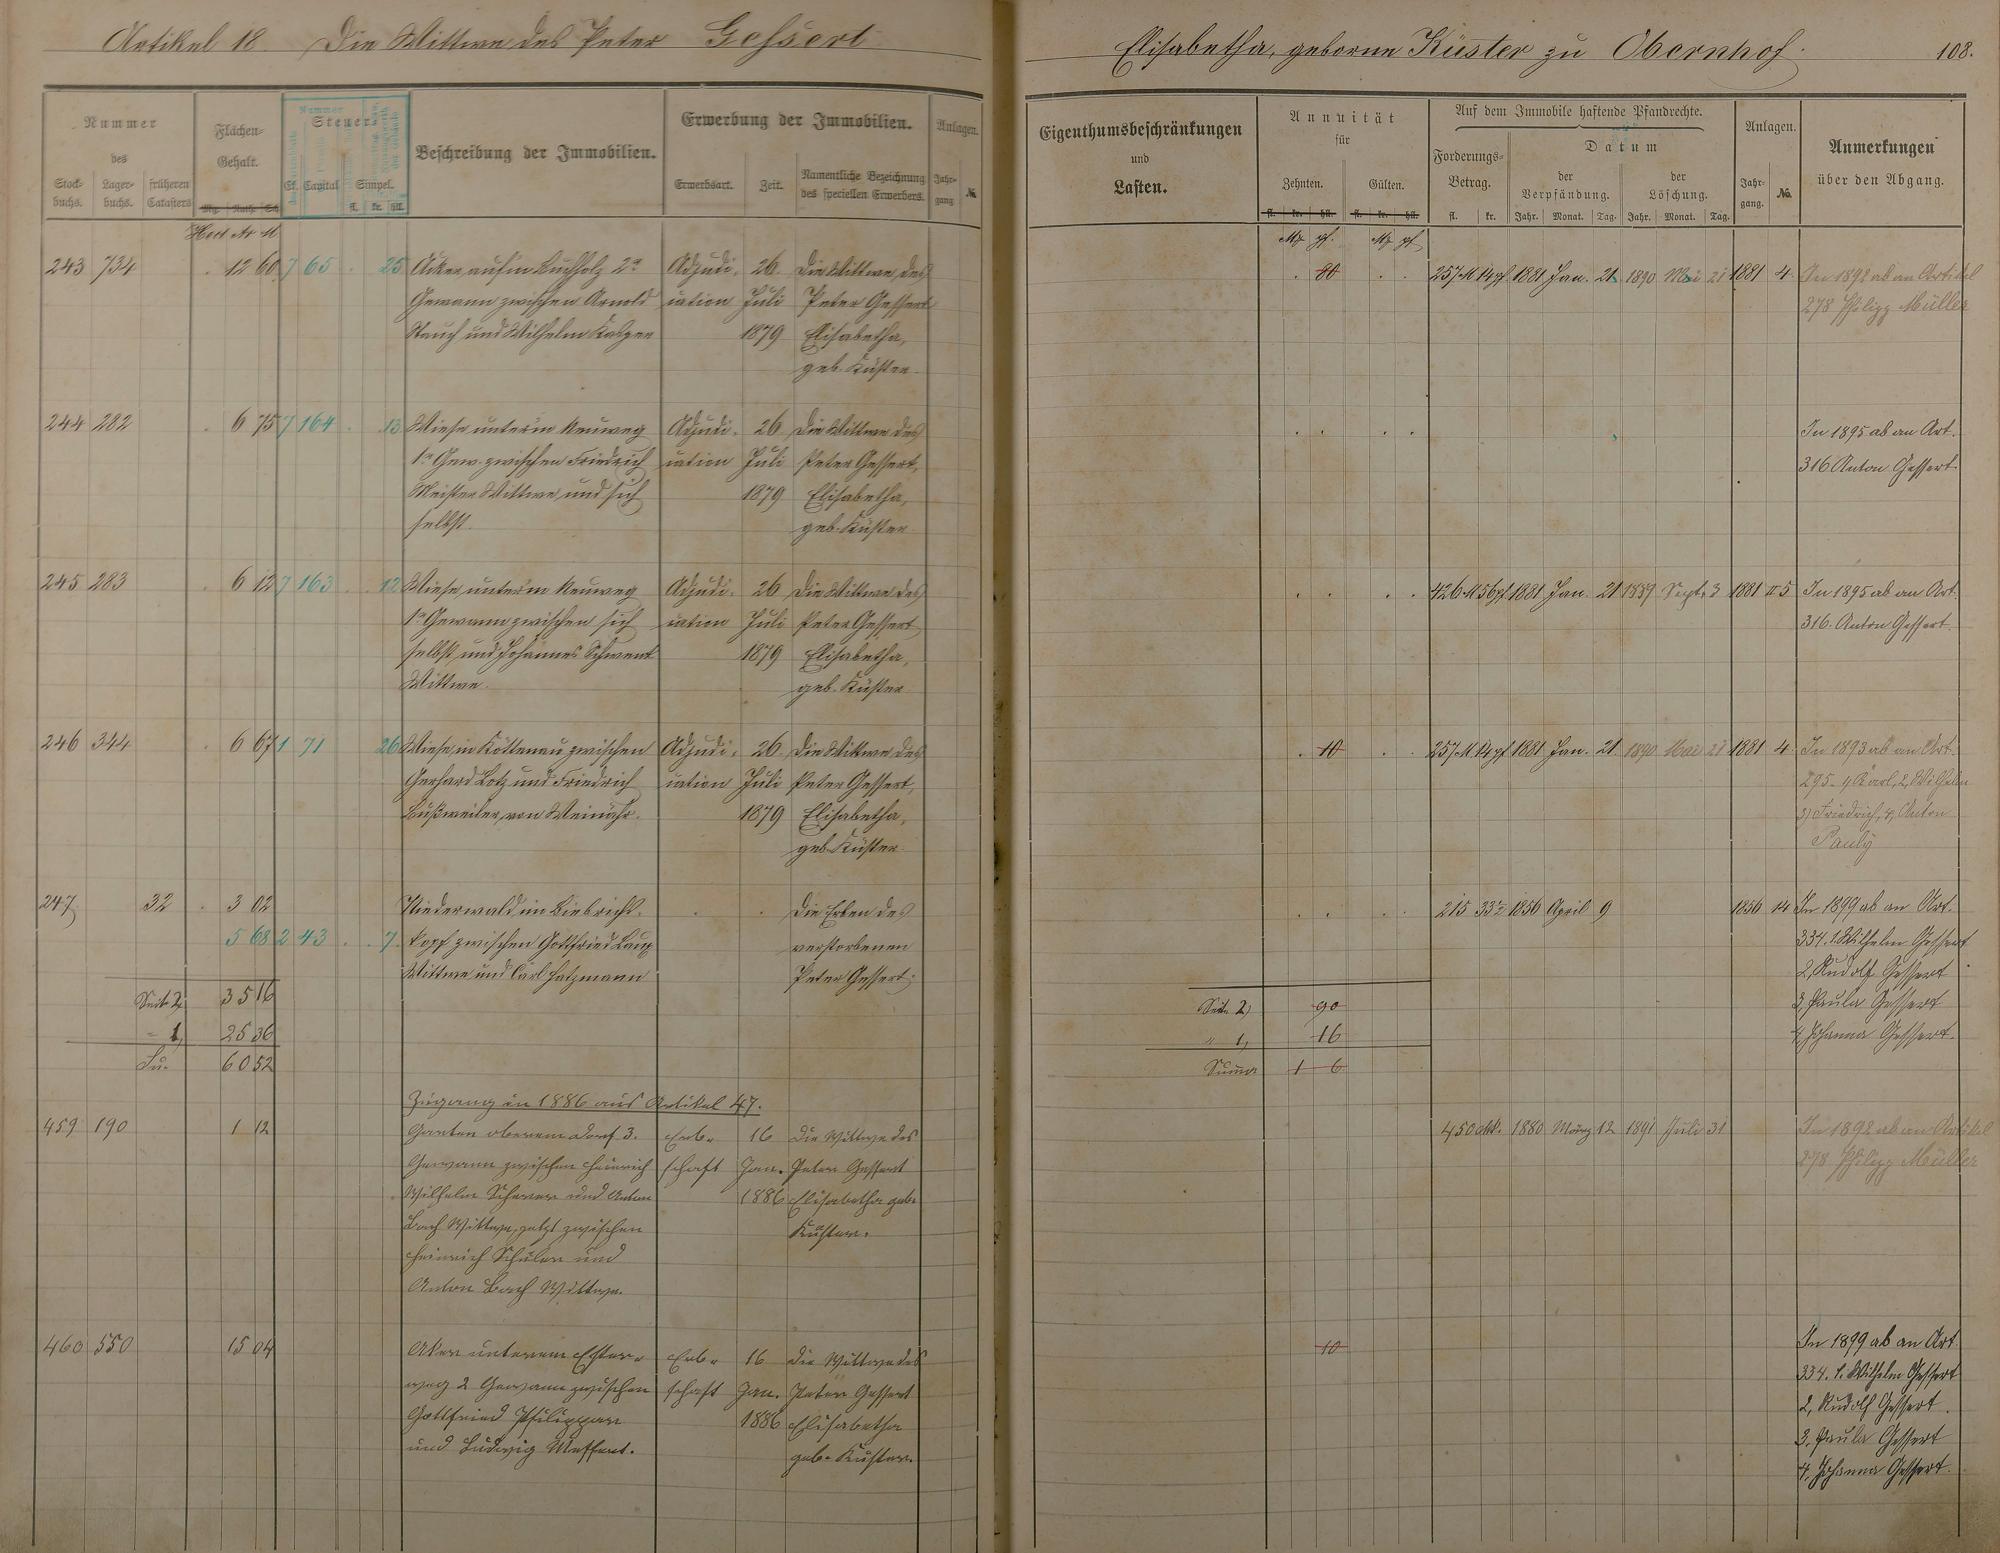 Artikel 18. Die Wittwe des Peter Gessert
Elisabetha, geborne Küster zu Obernhof.
108.
Nummer
des
Stock-
buchs.
Lager-
buchs.
früheren
Catasters
Flächen-
Gehalt.
Mg. Ruth. Sch.
Nummer
Steuer
Cl. Capital Simpel.
fl. kr. hll.
Beschreibung der Immobilien.
Erwerbung der Immobilien.
Erwerbsart.
Zeit.
Namentliche Bezeichnung
des speciellen Erwerbers.
Anlagen.
Jahr-
gang
№
Eigenthumsbeschränkungen
und
Lasten.
Annuität
für
Zehnten.
Gülten.
fl. kr. hll. fl. kr. hll.
Auf dem Immobile haftende Pfandrechte.
Forderungs-
Betrag.
fl. kr.
Datum
der
Verpfändung.
Jahr. Monat. Tag.
der
Löschung.
Jahr. Monat. Tag.
Anlagen.
Jahr-
gang.
No.
Anmerkungen
über den Abgang.
Hect Ar M
Mk pf. Mk pf
243 734 12 60 7 65 25 Acker auf'm Buchholz 2r Adjudi- 26. Die Wittwe des
Gewann zwischen Arnold cation Juli Peter Gessert
Stauch und Wilhelm Kasper 1879 Elisabetha,
geb. Küster
80 257 M 14 pf 1881 Jan. 21 1890 Mai 21 1881 4 In 1892 ab an Artikel
278 Philipp Müller
244 282 6 75 7 164 13 Wiese unterm Neuweg Adjudi- 26 Die Wittwe des
1r Gew. zwischen Friedrich cation Juli Peter Gessert,
Meister Wittwe und sich 1879 Elisabetha,
selbst. geb. Küster
In 1895 ab an Art.
316 Anton Gessert.
245 283 6 12 7 163 12 Wiese unterm Neuweg Adjudi- 26 Die Wittwe des
1r Gewann zwischen sich cation Juli Peter Gessert
selbst und Johannes Schwenk 1879 Elisabetha,
Wittwe. geb. Küster
426 M 56 pf 1881 Jan. 21 1889 Sept. 3 1881 II 5 In 1895 ab an Art.
316. Anton Gessert.
246 344 6 67 1 71 26 Wiese in Köttenau zwischen Adjudi- 26. Die Wittwe des
Gerhard Lotz und Friedrich cation Juli Peter Gessert,
Bußweiler von Weinähr. 1879 Elisabetha,
geb. Küster
10 257 M 14 pf 1881 Jan. 21 1890 Mai 21 1881 4 In 1893 ab an Art.
295. 1, Karl, 2, Wilhelm
3) Friedrich, 4, Anton
Pauly
247 32 3 02 Niederwald im Biebricks- Die Erben des
5 68 2 43 7 kopf zwischen Gottfried Laux verstorbenen
Wittwe und Carl Hatzmann Peter Gessert.
215 33½ 1856 April 9 1856 14 In 1899 ab an Art.
334. 1. Wilhelm Gessert
2, Rudolf Gessert
3, Paula Gessert
4, Johanna Gessert.
Seite 2, 35 16
" 1, 25 36
Su. 60 52
Seite 2) 90
" 1, 16
Summa 1 6
Zugang in 1886 aus Artikel 47.
459 190 1 12 Garten oberem Dorf 3. Erb- 16 Die Wittwe des
Gewann zwischen Heinrich schaft Jan. Peter Gessert
Wilhelm Scherer und Anton 1886 Elisabetha geb.
Bach Wittwe, jetzt zwischen Küster.
Heinrich Schuler und
Anton Bach Wittwe.
450 Mk. 1880 März 12 1891 Juli 31 In 1892 ab an Artikel
278 Philipp Müller
460 550 15 04 Aker unterem Ester- Erb- 16 Die Wittwe des
weg 2 Gewann zwischen schaft Jan. Peter Gessert
Gottfried Philippar 1886 Elisabetha
und Ludwig Meffert. geb. Küster.
10 In 1899 ab an Art.
334. 1. Wilhelm Gessert
2, Rudolf Gessert.
3, Paula Gessert
4, Johanna Gessert.